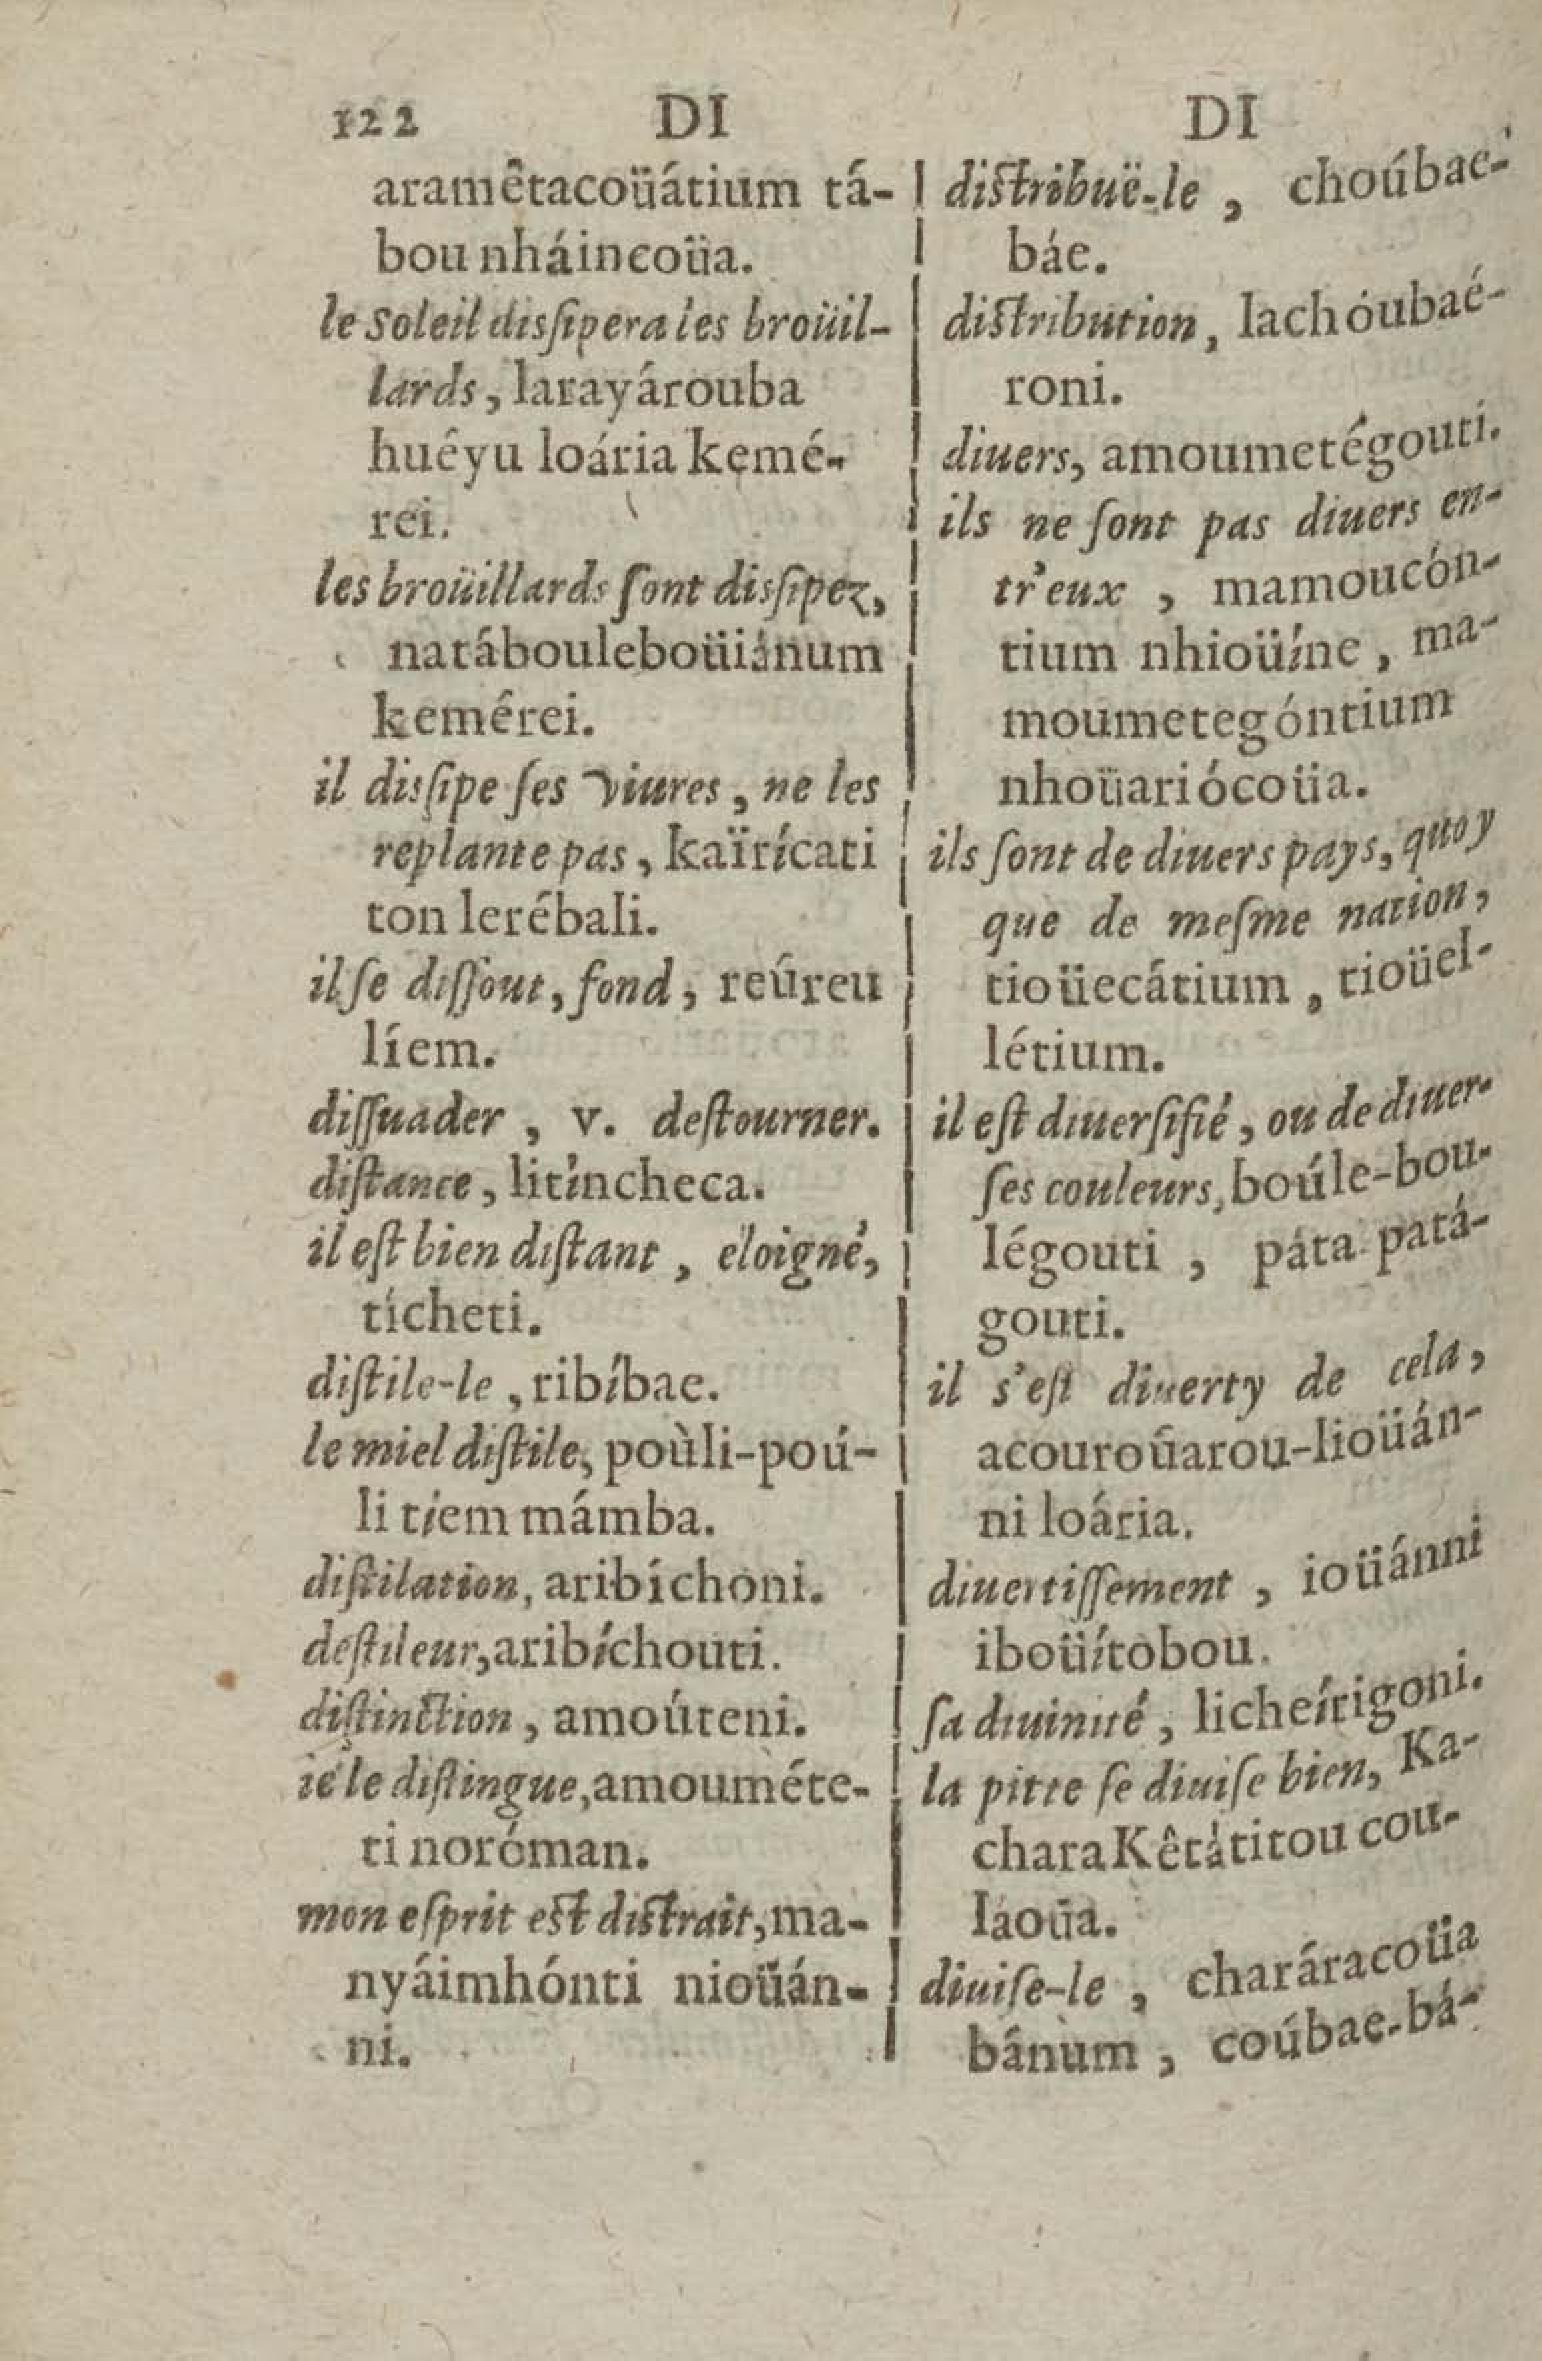 122 DI
aramêtacoüátium tá-
bou nháincoüa.
le Soleil dissipera les broüil-
lards, larayárouba
huéyu loária kemé-
rei.
les broüillards ſont disſipez,
natábouleboüiánum
kemérei.
il disſipe ſes viures, ne les
replante pas, kaïrícati
ton lerébali.
il ſe diſſout, fond, reúreu
líem.
diſſuader, v. deſtourner.
diſtance, litíncheca.
il eſt bien diſtant, éloigné,
tícheti.
diſtile-le, ribíbae.
le miel diſtile, poùli-poú-
li tíem mámba.
diſtilation, aribíchoni.
deſtileur, aribíchouti.
diſtinction, amoúteni.
ie le diſtingue, amouméte-
ti noróman.
mon eſprit eſt diſtrait, ma-
nyáimhónti nioüán-
ni.
DI
diſtribuë-le, choúbae-
báe.
diſtribution, lachóubaé-
roni.
diuers, amoumetégouti.
ils ne ſont pas diuers en-
tr'eux, mamoucón-
tium nhioüíne, ma-
moumetegóntium
nhoüariócoüa.
ils ſont de diuers pays, quoy
que de meſme nation,
tioüecátium, tioüel-
létium.
il eſt diuerſifié, ou de diuer-
ſes couleurs, boúle-bou-
légouti, páta patá-
gouti.
il s'eſt diuerty de cela,
acouroûarou-lioüán-
ni loária.
diuertiſſement, ioüánni
iboüítobou.
ſa diuinité, licheírigoni.
la pitte ſe diuiſe bien, Ka-
chara Kêtátitou cou-
laoüa.
diuiſe-le, charáracoüa
bánum, coúbae-bá-